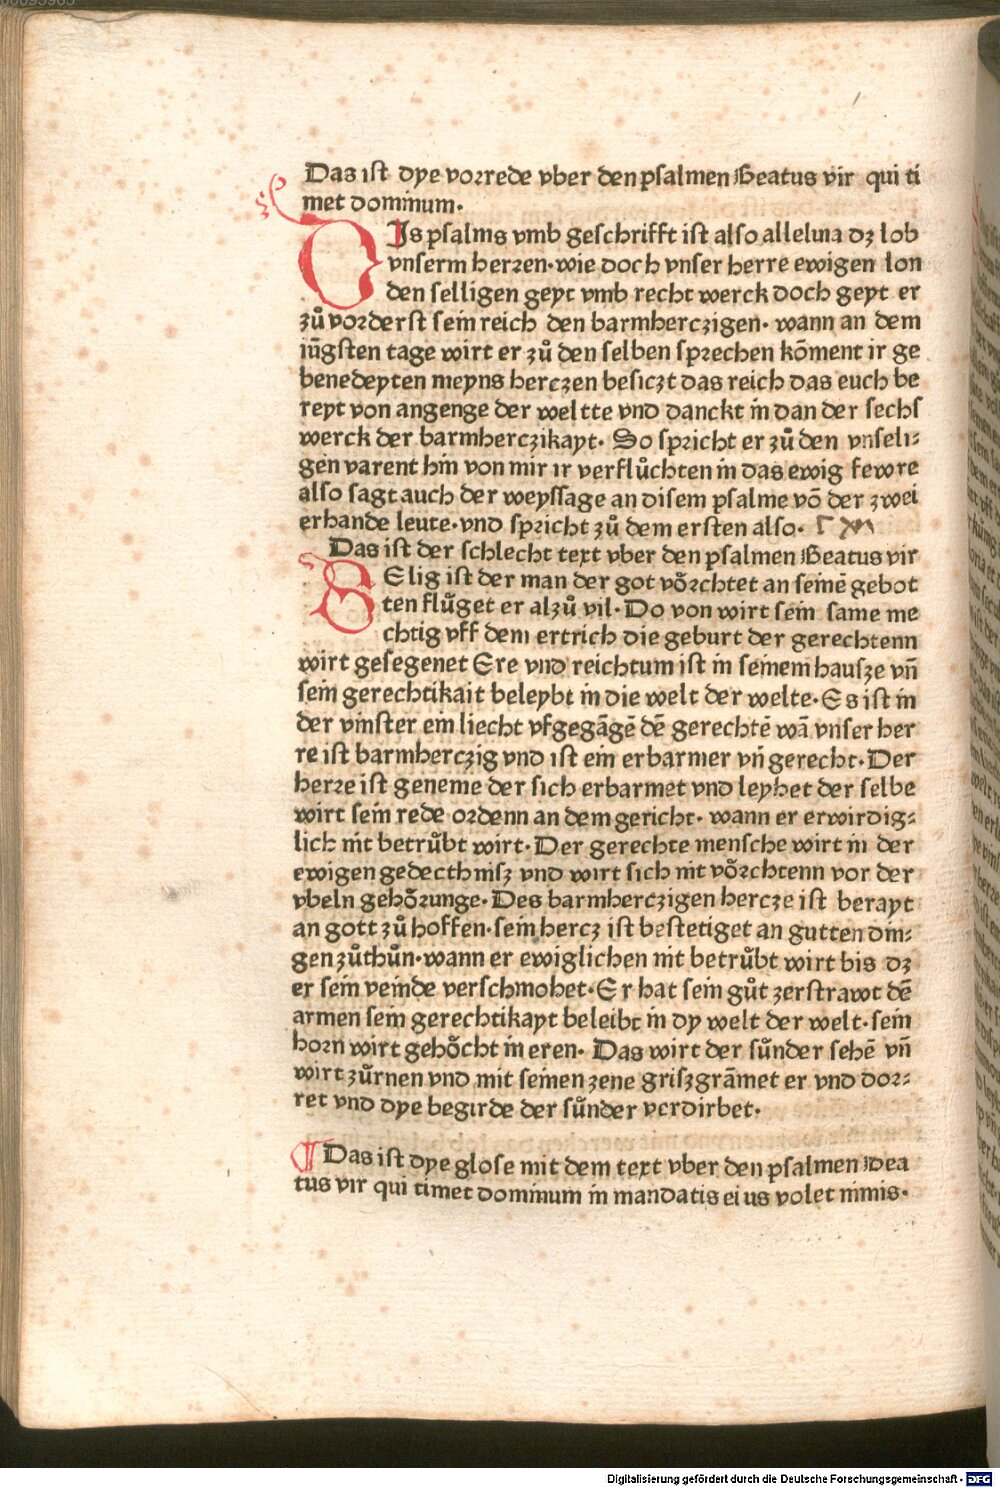 Das ist dye vorrede vber den psalmen Beatus vir qui ti
met dominum.
DJs psalms vmb geschrifft ist also alleluia dz lob
vnserm herren. wie doch vnser herre ewigen lon
den selligen geyt vmb recht werck doch geyt er
zuͦ vorderst sein reich den barmherczigen. wann an dem
iüngsten tage wirt er zuͦ den selben sprechen kōment ir ge
benedeyten meyns herczen besiczt das reich das euch be
reyt von angenge der weltte vnd danckt in dan der sechs
werck der barmherczikayt. So spricht er zuͦ den vnseli⸗
gen varent hin von mir ir verfluͦchten in das ewig fewre
also sagt auch der weyssage an disem psalme vō der zwei
erhande leute. vnd spricht zuͦ dem ersten also.
Das ist der schlecht text vber den psalmen Beatus vir
SElig ist der man der got vörchtet an seinē gebot
ten fluͦget er alzuͦ vil. Do von wirt sein same me
chtig vff dem ertrich die geburt der gerechtenn
wirt gesegenet Ere vnd reichtum ist in seinem hausze vn̄
sein gerechtikait beleybt in die welt der welte. Es ist in
der vinster ein liecht vfgegāgē dē gerechtē wā vnser her
re ist barmherczig vnd ist ein erbarmer vn̄ gerecht. Der
herre ist geneme der sich erbarmet vnd leyhet der selbe
wirt sein rede ordenn an dem gericht. wann er erwirdig⸗
lich nit betruͤbt wirt. Der gerechte mensche wirt in der
ewigen gedecthnisz vnd wirt sich nit vörchtenn vor der
vbeln gehörunge. Des barmherczigen hercze ist berayt
an gott zuͦ hoffen. sein hercz ist bestetiget an gutten din⸗
gen zuͦthuͦn. wann er ewiglichen nit betruͤbt wirt bis dz
er sein veinde verschmohet. Er hat sein guͦt zerstrawt dē
armen sein gerechtikayt beleibt in dy welt der welt. sein
horn wirt gehöcht in eren. Das wirt der sünder sehē vn̄
wirt zürnen vnd mit seinen zene griszgrāmet er vnd dor⸗
ret vnd dye begirde der sünder verdirbet.
¶ Das ist dye glose mit dem text vber den psalmen Bea
tus vir qui timet dominum in mandatis eius volet nimis.
Digitalisierung gefördert durch die Deutsche Forschungsgemeinschaft - DFG